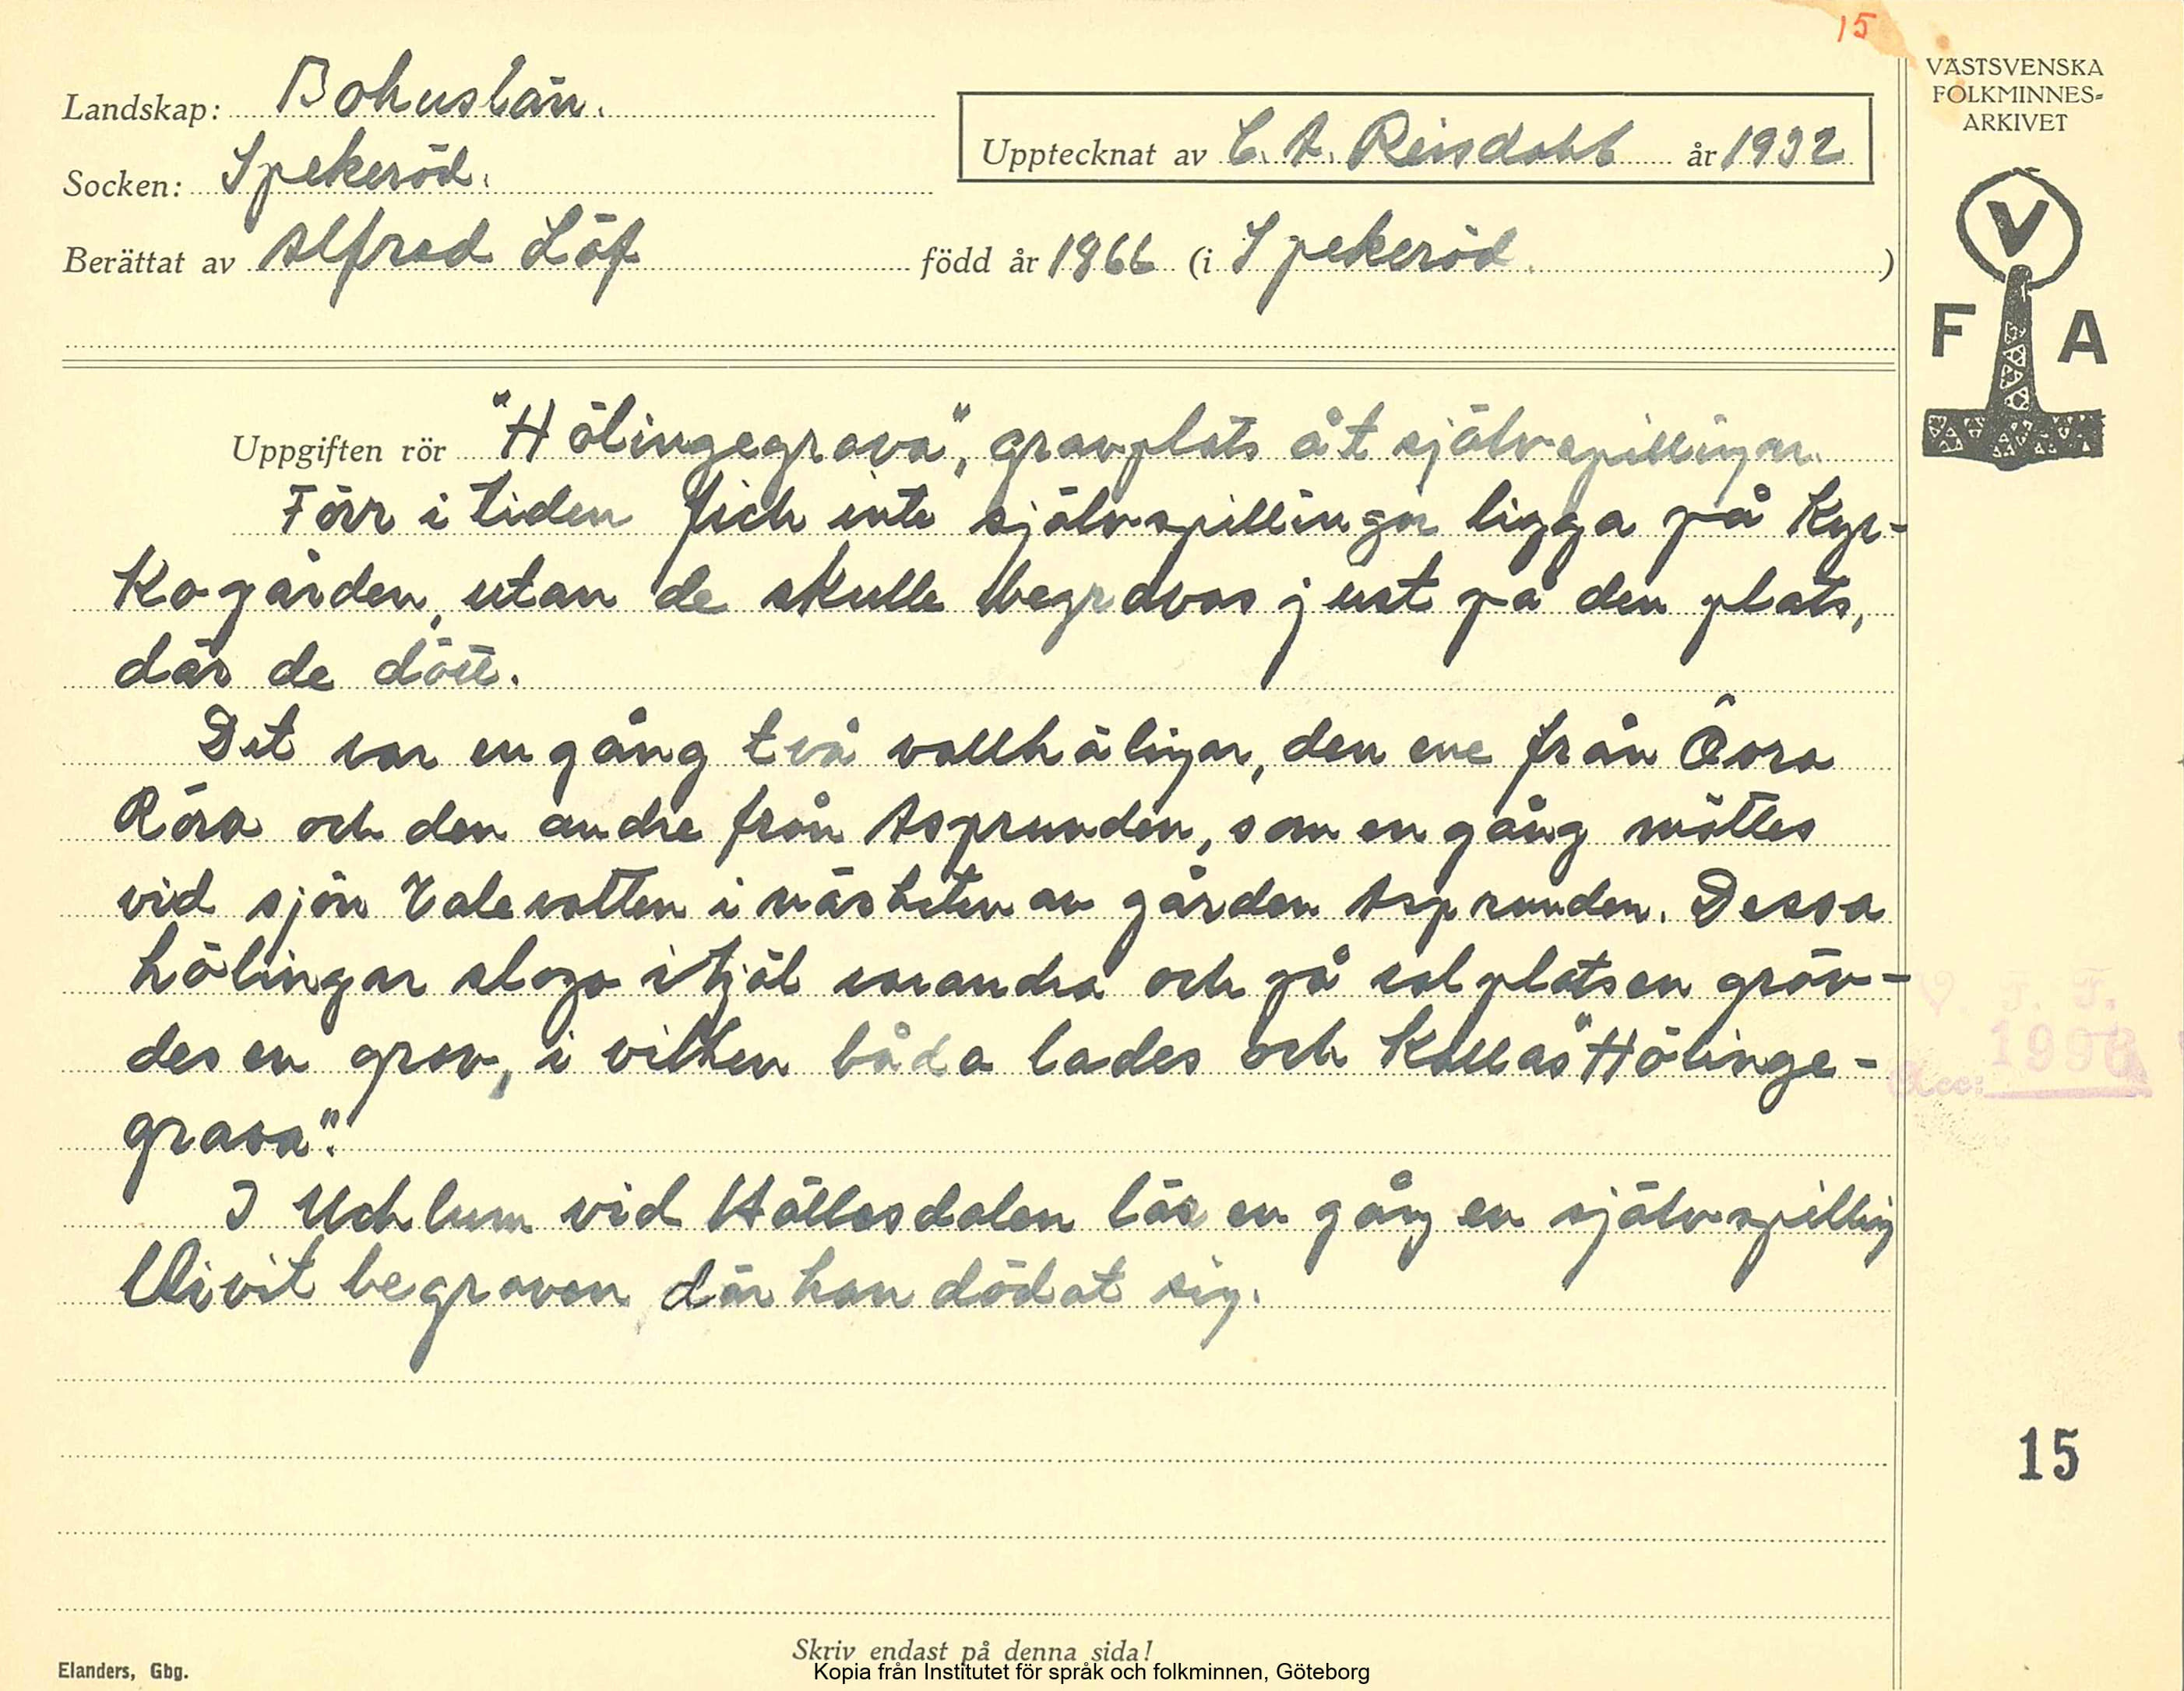 15
VÄSTSVENSKA
FOLKMINNES=
ARKIVET
Landskap: Bohuslän.
Upptecknat av C. A. Reisdahl år 1932
Socken: Spekeröd.
Berättat av Alfred Löf född år 1866 (i Spekeröd.)
V
F A
Uppgiften rör "Hölingegrava", gravplats åt självspillingar.
Förr i tiden fick inte självspillingar ligga på Kyr-
kogården, utan de skulle begravas just på den plats,
där de dött.
Det var en gång två vallhölingar, den ene från
Röra och den andre från Asprunden, som en gång möttes
vid sjön i närheten av gården Asprunden. Dessa
hölingar slogo ihjäl varandra och på valplatsen gröv-
des en grav, i vilken båda lades och kallas "Hölinge-
grava".
I Ucklum vid Hällesdalen lär en gång en självspilling
blivit begraven, där han dödat sig.
15
Skriv endast på denna sida!
Elanders, Gbg.
Kopia från Institutet för språk och folkminnen, Göteborg